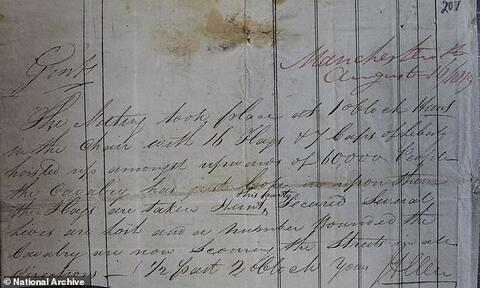 207
Manchester
August 16/1819
Gents
The Meeting took place at 1 oClock Hunt
in the Chair with 16 Flags & 7 Caps of Liberty
hoisted up amongst upwards of 60000 People
the Cavalry has just broke in upon them
the Flags are taken Hunt & his party Secured Several
Lives are Lost and a number wounded the
Cavalry are now Scouring the Streets in all
directions - 1/2 past 2 oClock yours
© National Archive